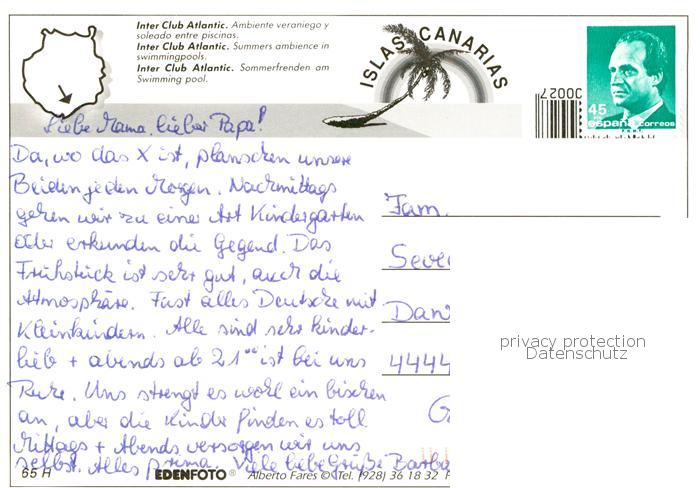 Inter Club Atlantic. Ambiente veraniego y
soleado entre piscinas.
Inter Club Atlantic. Summers ambience in
swimmingpools.
Inter Club Atlantic. Sommerfrenden am
Swimming pool.
ISLAS CANARIAS
00027
45
españa correos
Liebe Mama, lieber Papa!
Da, wo das X ist, planschen unsere
Beiden jeden Morgen. Nachmittags
gehen wir zu einer Art Kindergarten
oder erkunden die Gegend. Das
Frühstück ist sehr gut, auch die
Atmosphäre. Fast alles Deutsche mit
Kleinkindern. Alle sind sehr kinder-
lieb + abends ab 21°° ist bei uns
Ruhe. Uns strengt es wohl ein bischen
an, aber die Kinder finden es toll
Mittags + Abends versorgen wir uns
selbst. Alles prima. Viele liebe Grüße Barba
Fam.
4444
privacy protection
Datenschutz
65 H EDENFOTO® Alberto Fares © Tel. (928) 36 18 32